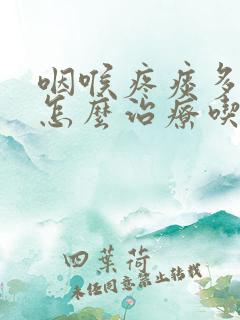 咽喉疼痰多
怎麼治療喫
四葉荷
未经同意禁止转载